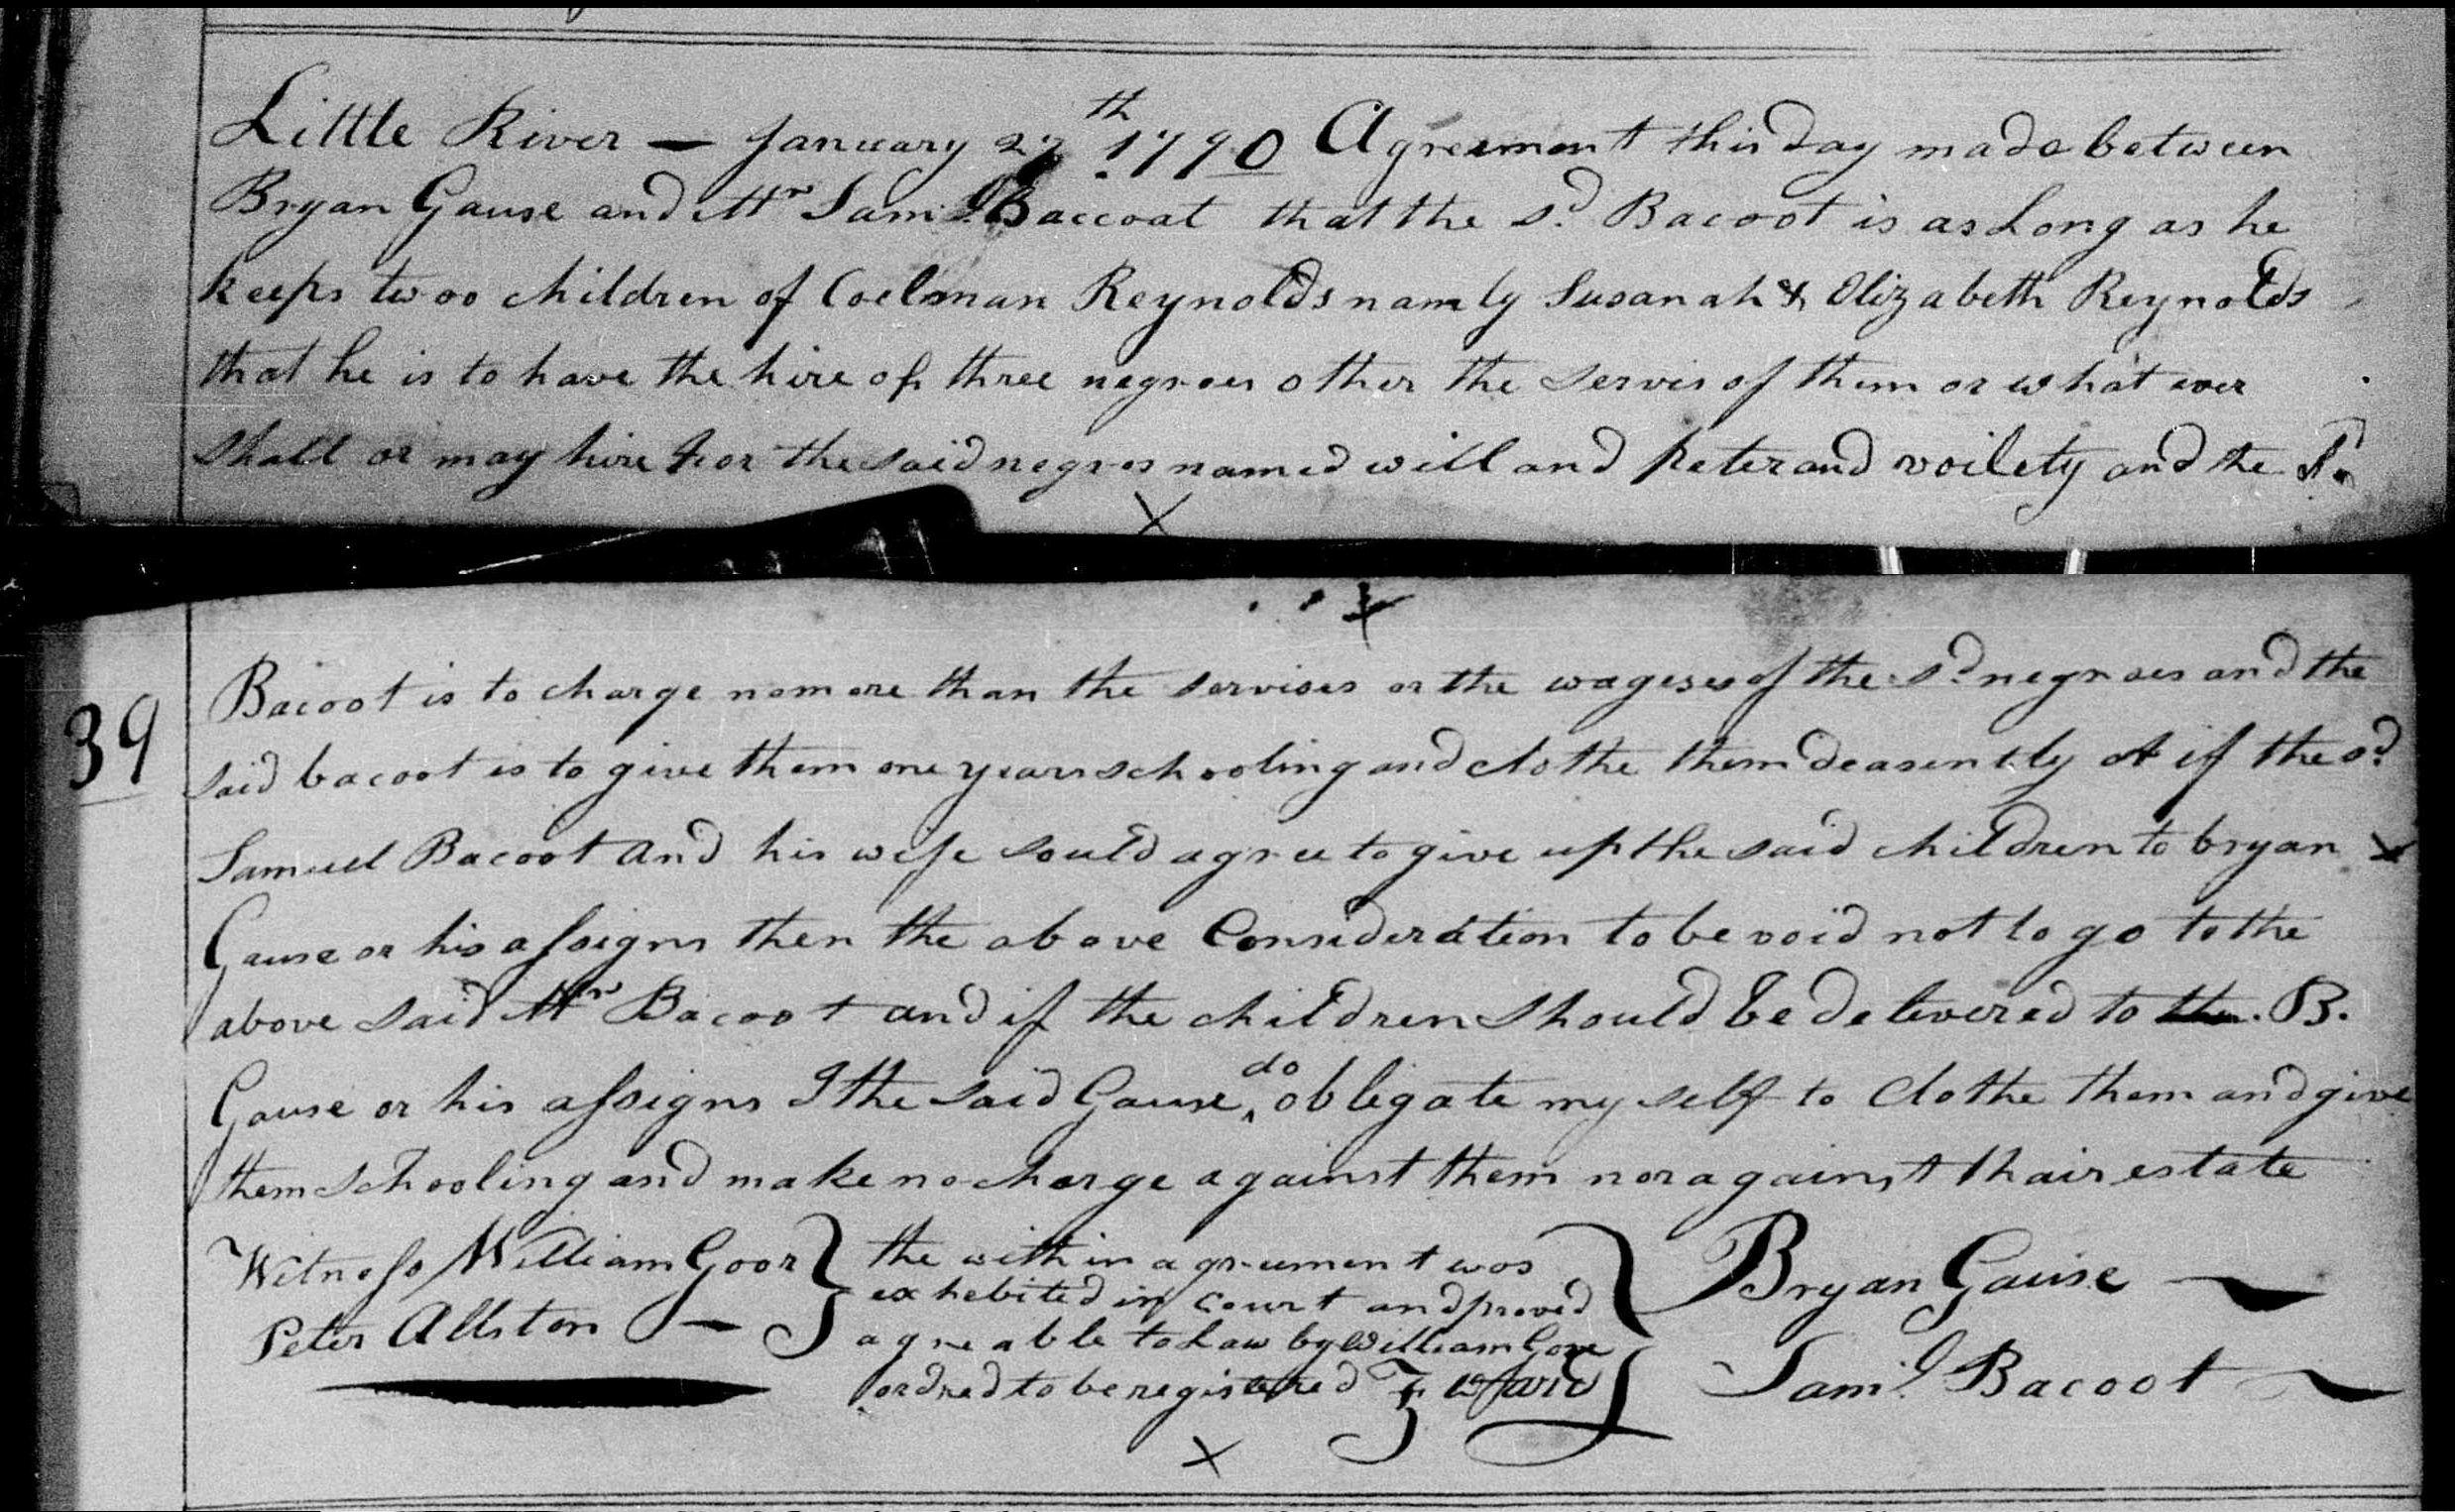 Little River — January 27th 1790 Agreement this day made between
Bryan Gause and Mr Saml Baccoat that the sd. Bacoot is as Long as he
keeps twoo children of Coelman Reynolds namly Susanah & Elizabeth Reynolds
that he is to have the hire of three negroes other the servis of them or what ever
shall or may hire for the said negros named will and Peter and voilety and the sd.
39
Bacoot is to charge nomore than the servises or the wageses of the sd negroes and the
said bacoot is to give them one years schooling and clothe them deasently & if the sd
Samuel Bacoot and his wife sould agree to give up the said children to bryan
Gause or his assigns then the above Consideration to be void not to go to the
above said Mr Bacoot and if the children should be delivered to the. B.
Gause or his assigns I the said Gause do oblegate my self to Clothe them and give
them schooling and make no charge against them nor against thair estate
Witness William Goor the within agreement was Bryan Gause
exhebited in Court and proved
Peter Allston agreable to Law by William Gore Saml. Bacoot
ordred to be registered